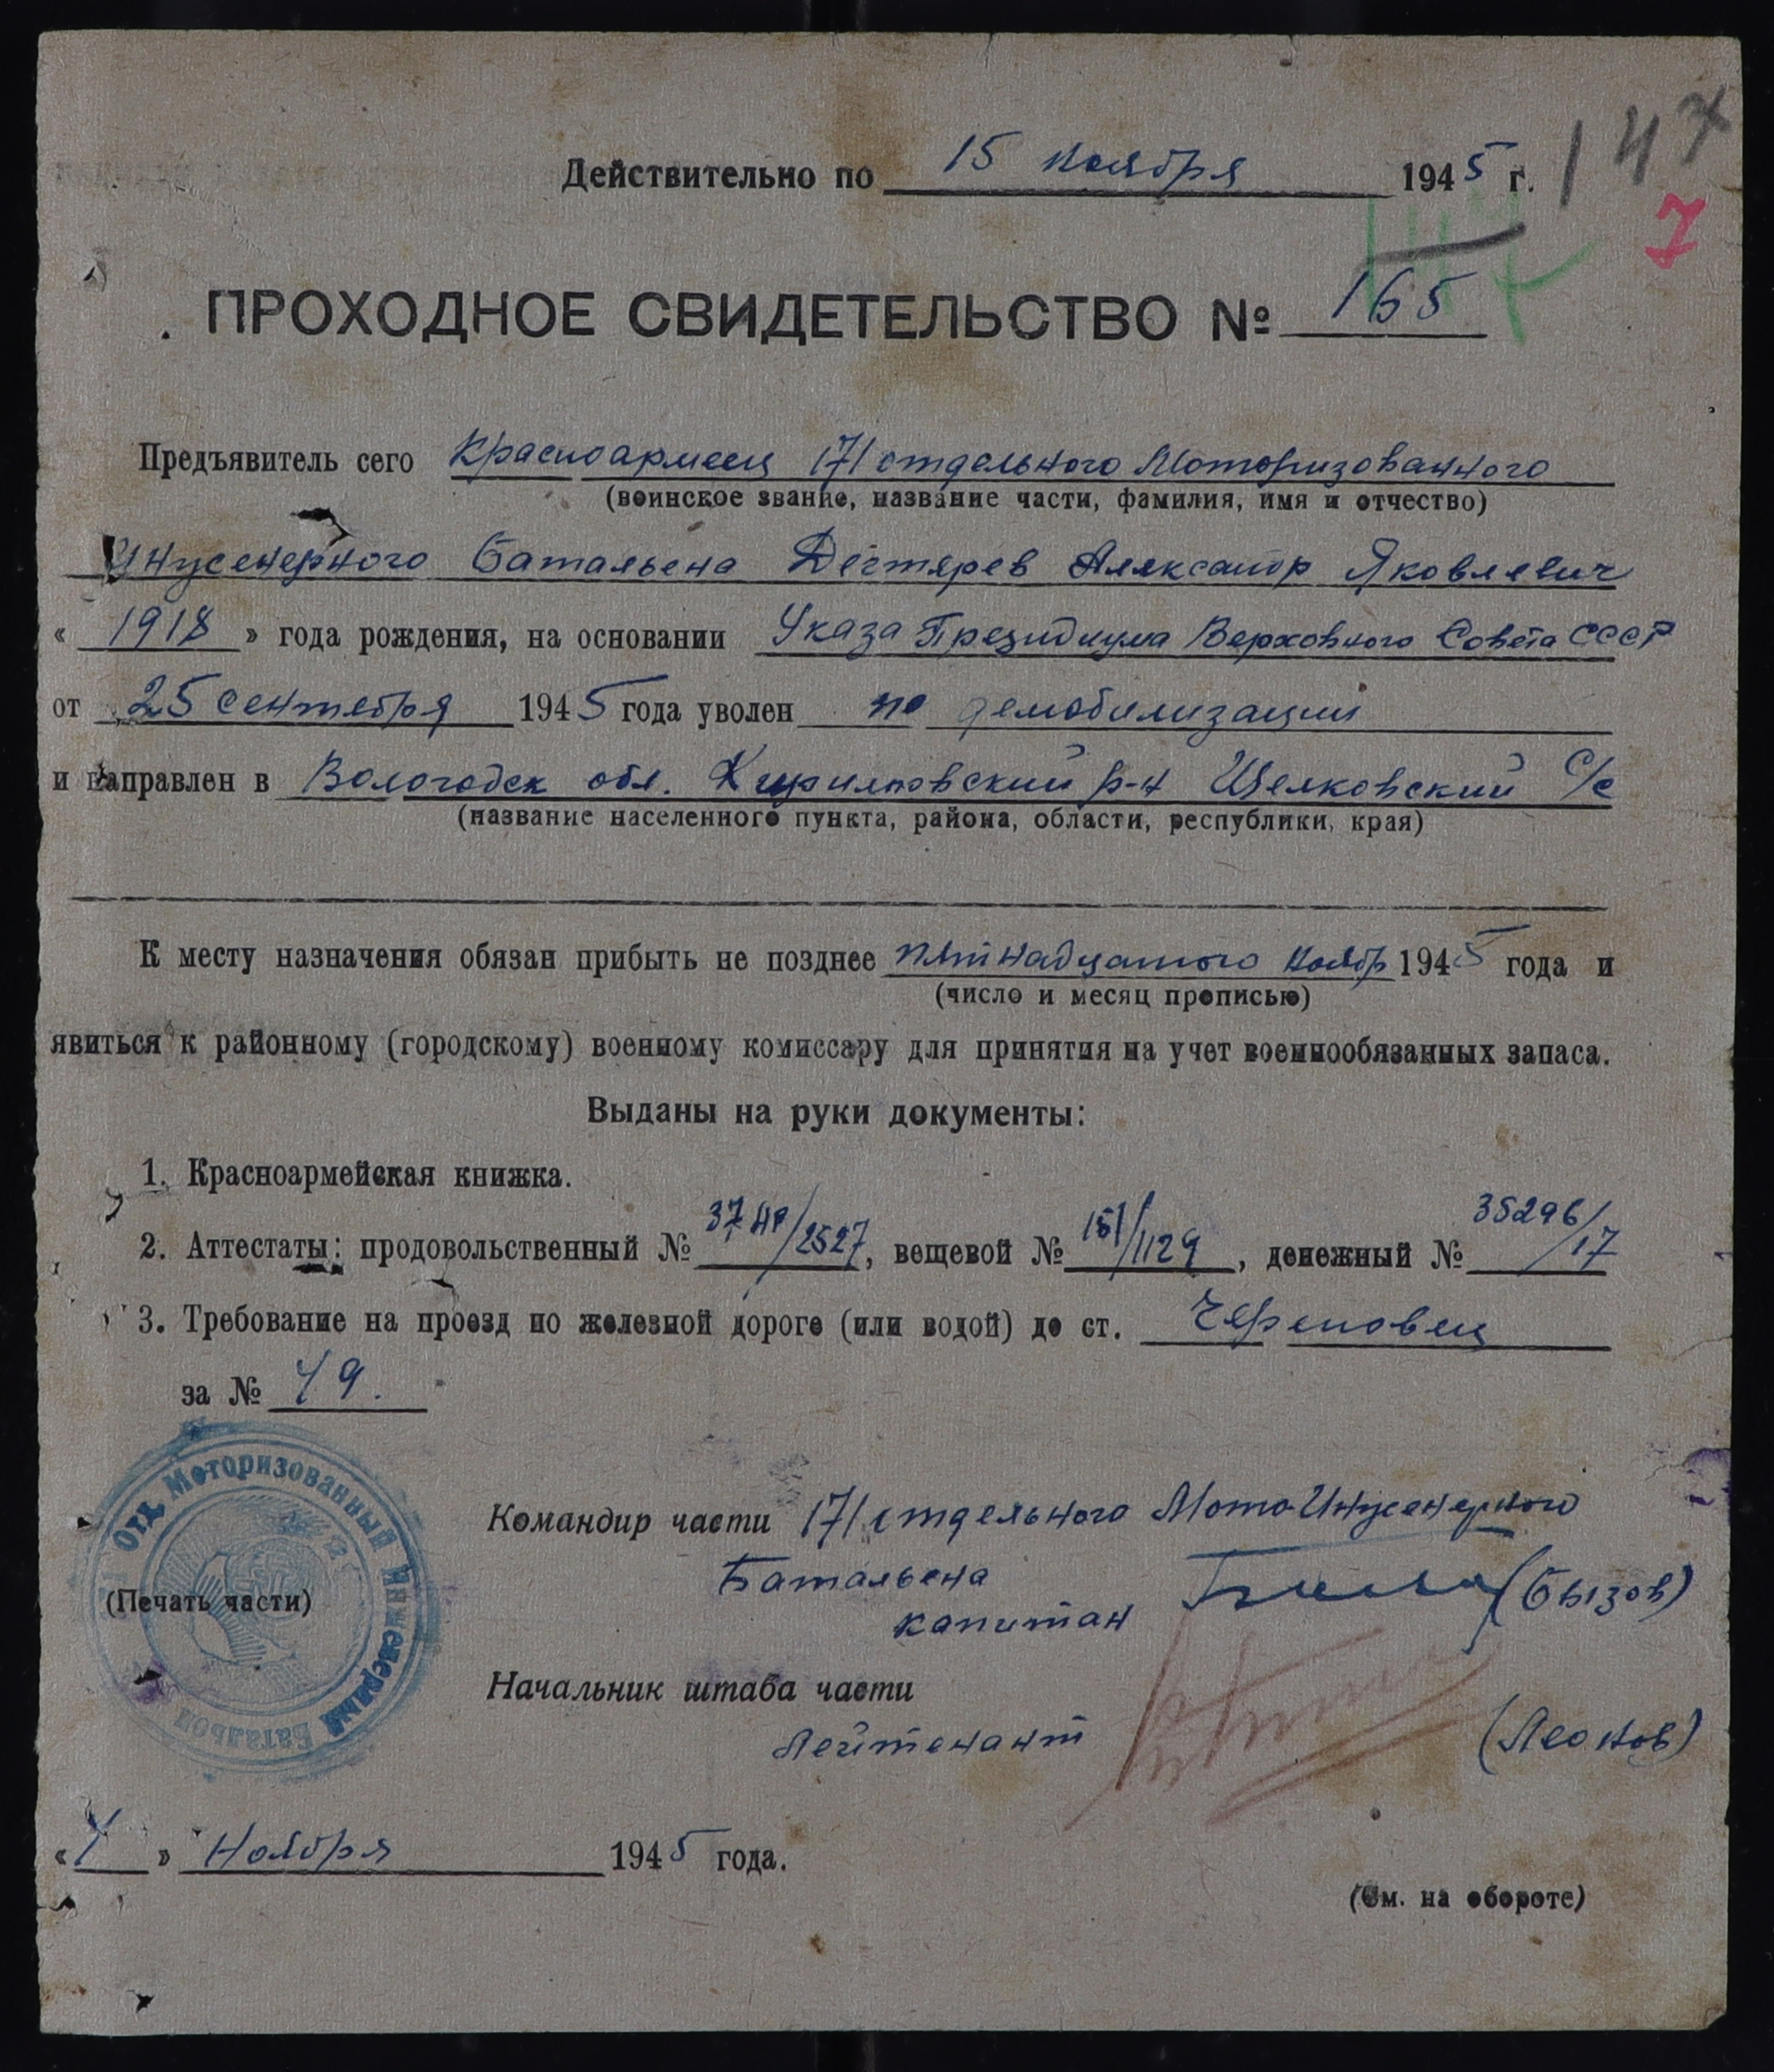 147
7
Действительно по 15 ноября 1945 г.
ПРОХОДНОЕ СВИДЕТЕЛЬСТВО № 165
Предъявитель сего Красноармеец 171 отдельного Моторизованного
(воинское звание, название части, фамилия, имя и отчество)
Инженерного Батальена Дегтярев Александр Яковлевич
« 1918 » года рождения, на основании Указа Президиума Верховного Совета СССР
от 25 сентября 1945 года уволен по демобилизации
и направлен в Вологодск обл. Кирилловский р-н Шелковский С/с
(название населенного пункта, района, области, республики, края)
К месту назначения обязан прибыть не позднее пятнадцатого ноябр 1945 года и
(число и месяц прописью)
явиться к районному (городскому) военному комиссару для принятия на учет военнообязанных запаса.
Выданы на руки документы:
1. Красноармейская книжка.
2. Аттестаты: продовольственный № /2527, вещевой № 151/1129, денежный № 35296/17
3. Требование на проезд по железной дороге (или водой) до ст. Череповец
за № 49.
Отд. Моторизованный Инженерный Батальон
(Печать части)
Командир части 171 отдельного Мото-Инженерного
Батальена
капитан (Бызов)
Начальник штаба части
Лейтенант (Леонов)
« 4 » Ноября 1945 года.
(См. на обороте)